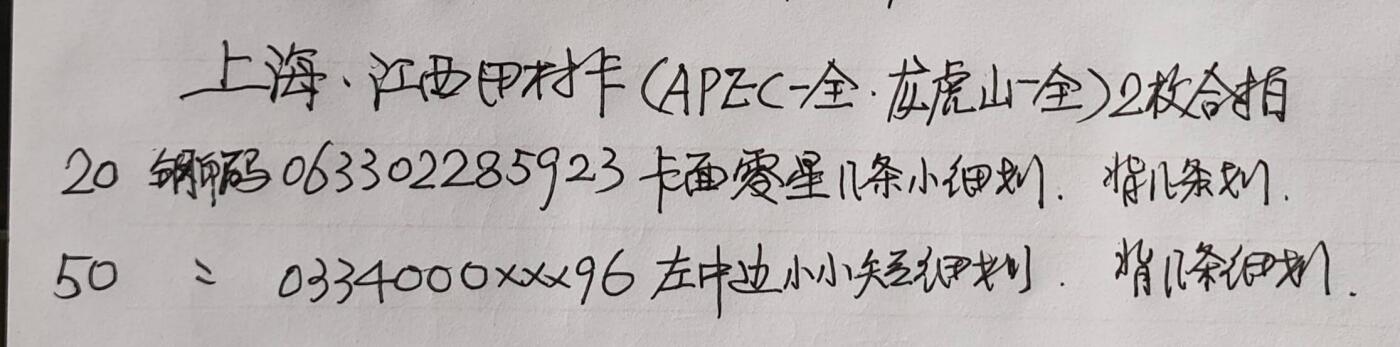 上海·江西田村卡(APEC一全·龙虎山一全)2枚合拍
20 钢印码0633022285923卡面零星几条小细划. 背几条划.
50 〃 0334000xxx96 左中边小小短细划. 背几条细划.